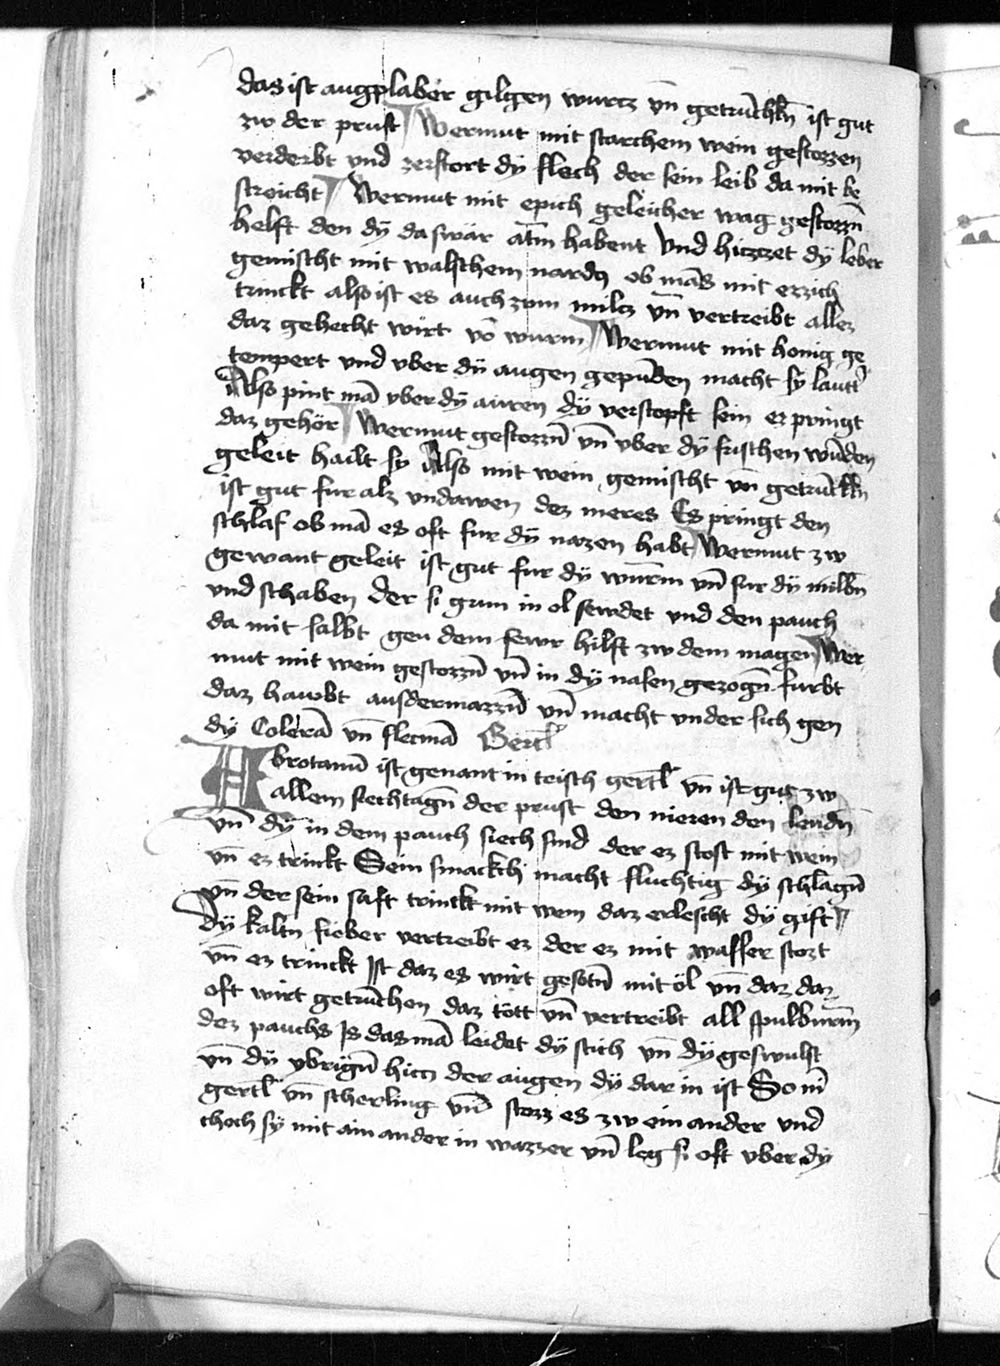 das ist augplaber gilgen wurcz vn̄ getrūchkn̄ ist gut
zw der prust Wermut mit starchem wein gestozzen
verderbt vnd zerstort dÿ flech der sein leib da mit be
streicht Wermut mit epich geleicher wag gestozzn̄
helft den dÿ da swär atm̄ habent vnd hiczzet dÿ leber
gemischt mit walschem nardo ob mās mit ezzich
trinckt also ist es auch zum milcz vn̄ vertreibt allez
daz gehecht wirt vō wurm Wermut mit honig ge
tempert vnd vber dÿ augen gepūden macht sy lautt
Also pint mā vber dÿ auren dÿ verstopft sein er pringt
daz gehör Wermut gestozzn̄ vn̄ vber dÿ frischen wūden
geleit hailt sy Also mit wein gemischt vn̄ getrūckn
ist gut fur alz vndawen dez meres Es pringt den
schlaf ob mā es oft fur dÿ nazen habt Wermut zw
gewant geleit ist gut fur dÿ wurm̄ vn̄ fur dÿ milbn̄
vnd schaben der si grun in ol sewdet vnd den pauch
da mit salbt gen dem fewr hilft zw dem magen Wer
mut mit wein gestozzn̄ vn̄ in dÿ nasen gezogn̄ furbt
daz haubt ausdermazzn̄ vn̄ macht vnder sich gen
dÿ Colerā vn̄ flecmā Gertl
Abrotanū ist genant in teisch gertl vn̄ ist gut zw
allem siechtagn̄ der prust den nieren den lendn̄
vn̄ dÿ in dem pauch siech sind der ez stost mit wein
vn̄ ez trinckt Sein smackch macht fluchtig dÿ schlagn̄
vn̄ der sein saft trinckt mit wein daz erlescht dÿ gift
dÿ kaltn fieber vertreibt ez der ez mit wasser stozt
vn̄ ez trinckt Ist daz es wirt gesotn̄ mit öl vn̄ daz daz
oft wirt getrūchen daz tött vn̄ vertreibt all spulburm̄
dez pauchs Is das mā leidet dÿ stich vn̄ dÿ geswulst
vn̄ dÿ vbrign̄ hicz der augen dÿ dar in ist So nī
gertl vn̄ scherling vn̄ stozz es zw ein ander vnd
choch sy mit ain ander in wazzer vn̄ leg si oft vber dÿ